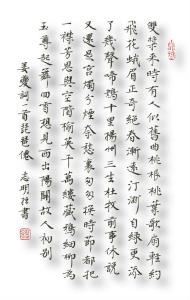 雙槳來時有人似舊曲桃根桃葉歌扇輕約
飛花蛾眉正奇絕春漸遠汀洲自綠更添
了幾聲啼鴂十里揚州三生杜牧前事休說
又還是宮燭分煙奈愁裏匆匆換時節都把
一襟芳思與空階榆莢千萬縷藏鴉細柳為
玉尊起舞回雪想見西出陽關故人初別
姜夔詞一首琵琶仙 志明 書